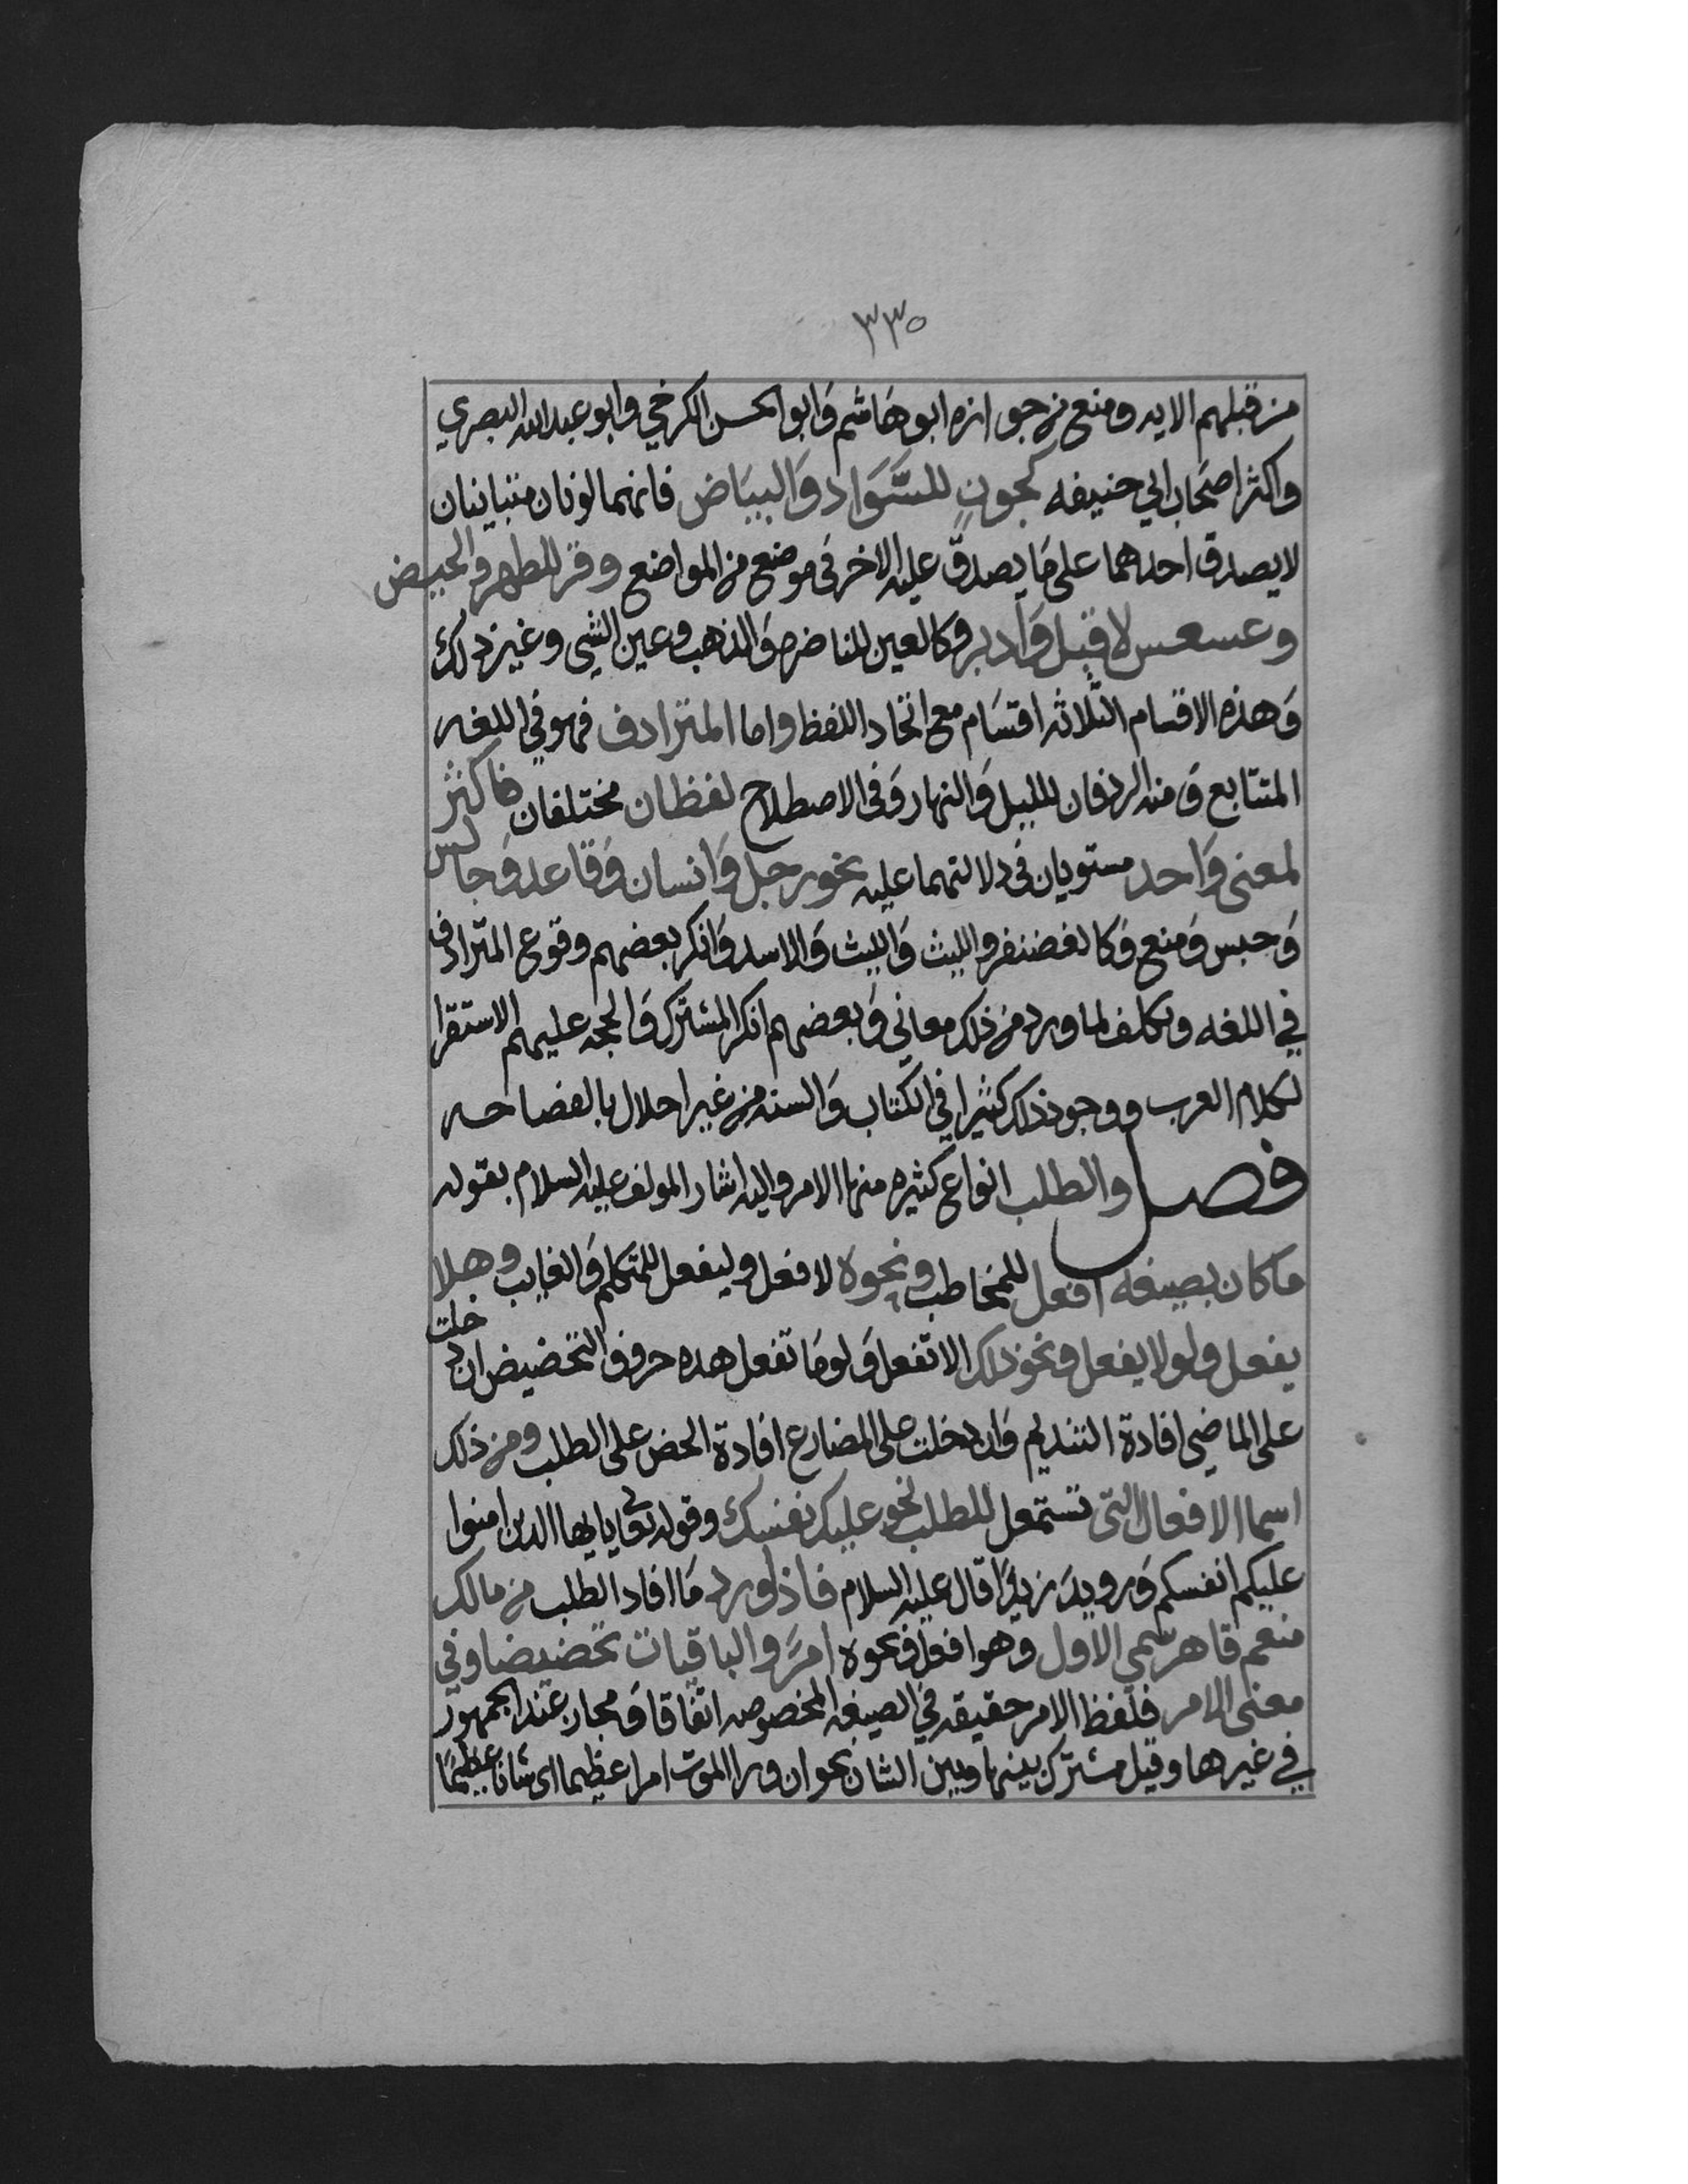 ٣٣٥
من قبلهم الايه ومنع من جوازه ابو هَاشم وَابو الحسن الكرخي وابو عبد الله البصري
واكثر اصحَاب ابي حنيفه كجونٍ للسَّوَاد وَالبيَاض فانهما لونان متباينان
لا يصدق احدهما على مَا يصدق عليه الاخر في موضع من المواضع وقرٍ للطهر والحيض
وعسعس لاقبل وَادبر وكالعين للناضره وَالذهب وعين الشي وغير ذلك
وَهذه الاقسام الثلاثه اقسَام مع اتحاد اللفظ واما المترادف فهو في اللغه
المتتابع وَمنه الردفان لليل وَالنهار وَفي الاصطلاح لفظان مختلفان فاكثر
لمعنى وَاحد مستويان في دلالتهما عليه نحو رجل وَانسان وَقاعد وَجالس
وَحبس وَمنع وَكالغضنفر والليث وَالليث وَالاسد وَانكر بعضهم وقوع المترادف
في اللغه وتكلف لما ورد من ذلك معاني وَبعضهم انكر المشترك وَالحجه عليهم الاستقرا
لكلام العرب ووجود ذلك كثيرا في الكتاب وَالسنه من غير احلال بالفصاحه
فصل والطلب انواع كثيره منها الامر واليه اشار المولف عليه السلام بقوله
ماكان بصيغه افعل للمخاطب ونحوه لافعل وليفعل للمتكلم وَالغايب وهلا
يفعل ولولا يفعل ونحو ذلك الا تفعل وَلومَا تفعل هده حروف التحضيض ان دخلت
على الماضي افادة التنديم وَان دخلت على المضارع افادة الحض على الطلب ومن ذلك
اسما الافعال التي تستعمل للطلب نحو عليك نفسك وقوله تعالى يا ايها الدين امنوا
عليكم انفسكم وَرويدَ زيدًا قال عليه السلام فاذا ورد مَا افاد الطلب من مالك
منعم قاهر سمي الاول وهو افعل ونحوه امرًا والباقيات تحضيضا وفي
معنى الامر فلفظ الامر حقيقه في الصيغه المخصوصه اتفاقا وَمجاز عند الجمهور
في غيرها وقيل مشترك بينها وبين الشان نحو ان ورا الموت امرا عظيما اي شانا عظيمًا